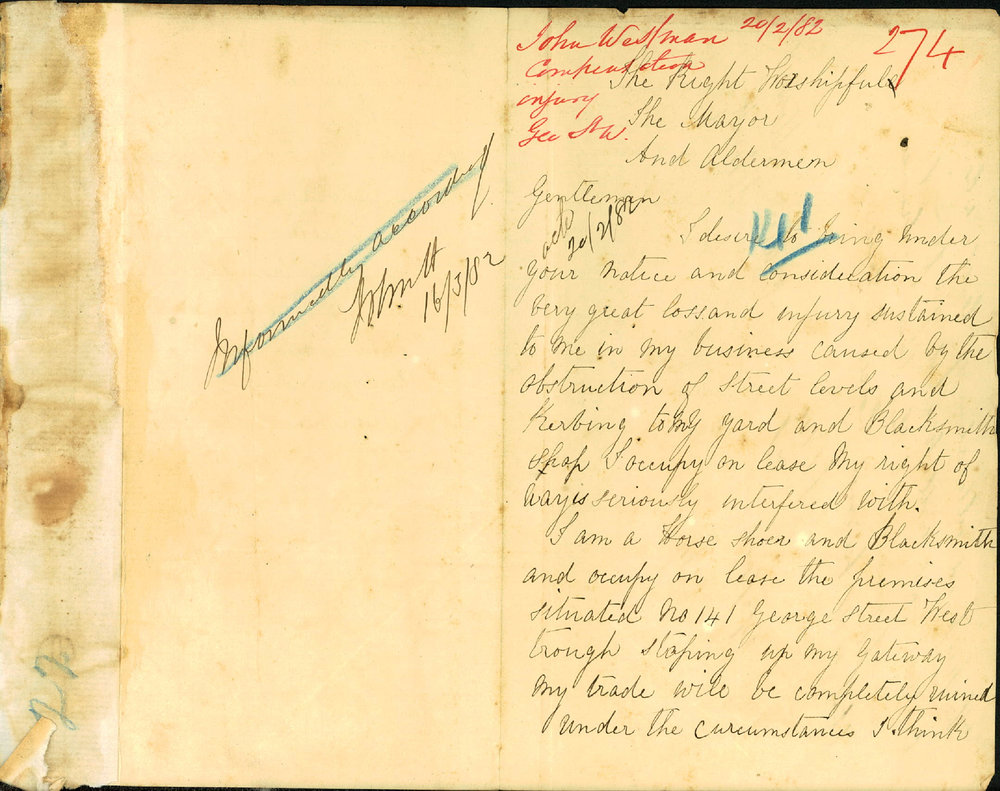 Informed by accordingly
16/3/82
John Westman 20/2/82
Compensation
injury
Geo St W.
274
The Right Worshipful
The Mayor
And Aldermen
Gentlemen
ack 20/2/82
I desire to bring under
your notice and consideration the
very great loss and injury sustained
to me in my business caused by the
obstruction of street levels and
Kerbing to my yard and Blacksmith
shop I occupy on lease My right of
way is seriously interfered with.
I am a Horse shoer and Blacksmith
and occupy on lease the premises
situated No 141 George Street West
trough stoping up my Gateway
My trade will be completely ruined
under the curcumstances I think